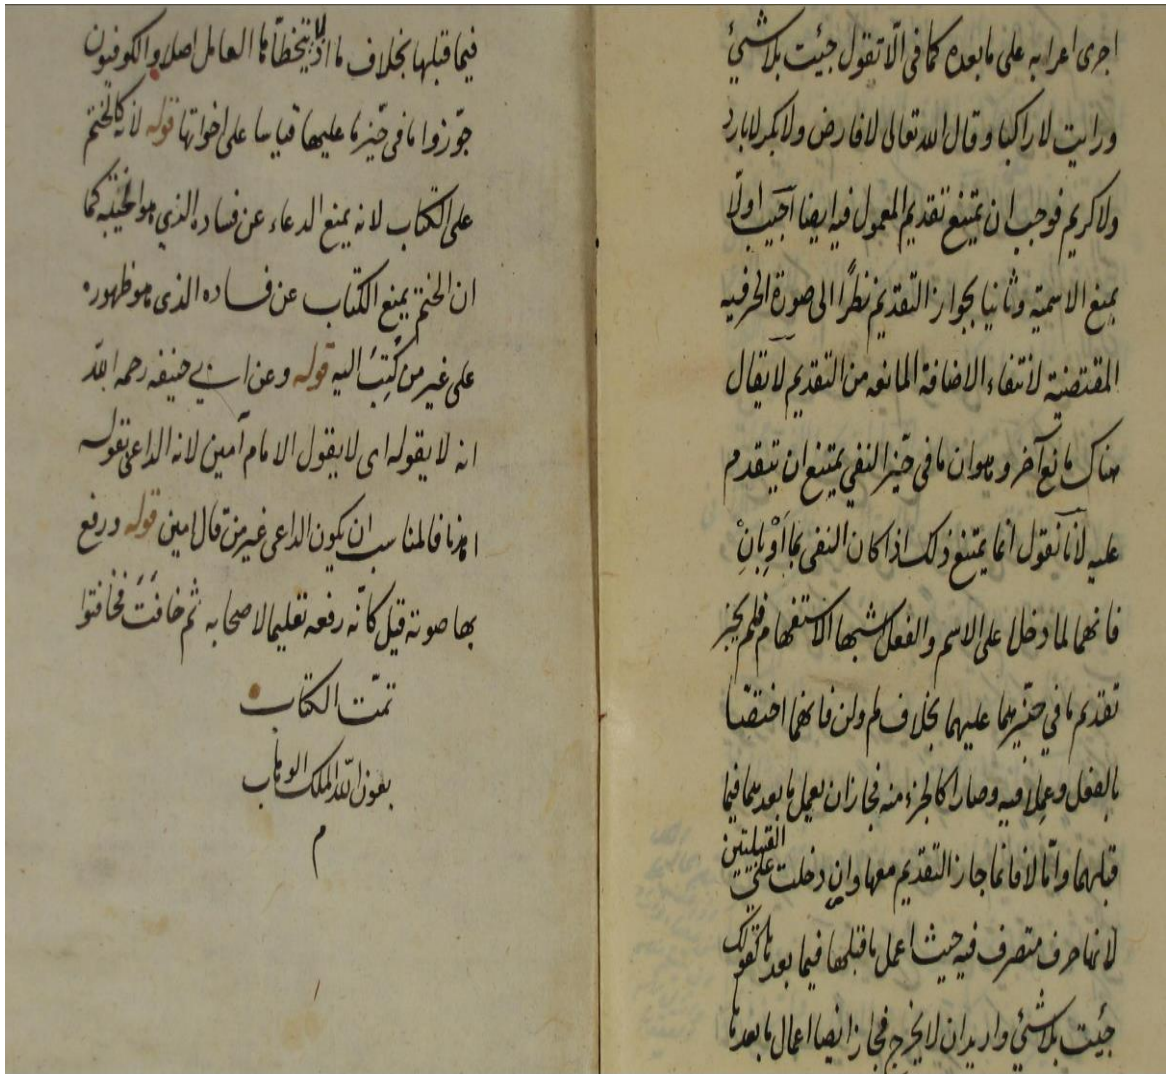 اجرى اعرابه على ما بعده كما فى الّا تقول جيئت بلا شئ
ورايت لا راكبا وقال الله تعالى لا فارض ولا بكر لا بارد
ولا كريم فوجب ان يمتنع تقديم المعمول فيه ايضا اجيب اولا
بمنع الاسمية وثانيا بجواز التقديم نظرًا الى صورة الحرفيه
المقتضية لانتفاء الاضافة المانعه من التقديم لا يقال
هناك مانع آخر وهو ان ما فى حيّز النفي يمتنع ان يتقدم
عليه لانا نقول انما يمتنع ذلك اذا كان النفى بما اَوْ بِاِنْ
فانهما لما دخلا على الاسم والفعل اشبها الاستفهام فلم يجز
تقديم ما في حيّزهما عليهما بخلاف لم ولن فانهما اختصّا
بالفعل وعملا فيه وصارا كالجزء منه فجاز ان يعمل ما بعدهما فيما
قبلهما وامّا لا فانما جاز التقديم معها وان دخلت على القبيلتين
لانها حرف متصرف فيه حيث اعمل ما قبلها فيما بعدها كقولك
جيئت بلا شئ واريد ان لا يخرج فجاز ايضا اعمال ما بعدها
فيما قبلها بخلاف ما اذ لا يتخطاها العامل اصلا والكوفيون
جوّزوا ما فى حيّز ما عليها قياسا على اخواتها قوله لانه كالختم
على الكتاب لانه يمنع الدعاء عن فساده الذي هو الخيبة كما
ان الختم يمنع الكتاب عن فساده الذى هو ظهوره
على غير من كُتِبَ اليه قوله وعن ابي حنيفه رحمه الله
انه لا يقوله اى لا يقول الامام آمين لانه الداعى بقوله
اهدنا فالمناسب ان يكون الداعى غير من قال امين قوله ورفع
بها صوته قيل كانّه رفعه تعليما لاصحابه ثم خافَتَ فخافتوا
تمّت الكتاب
بعون الله الملك الوهاب
م